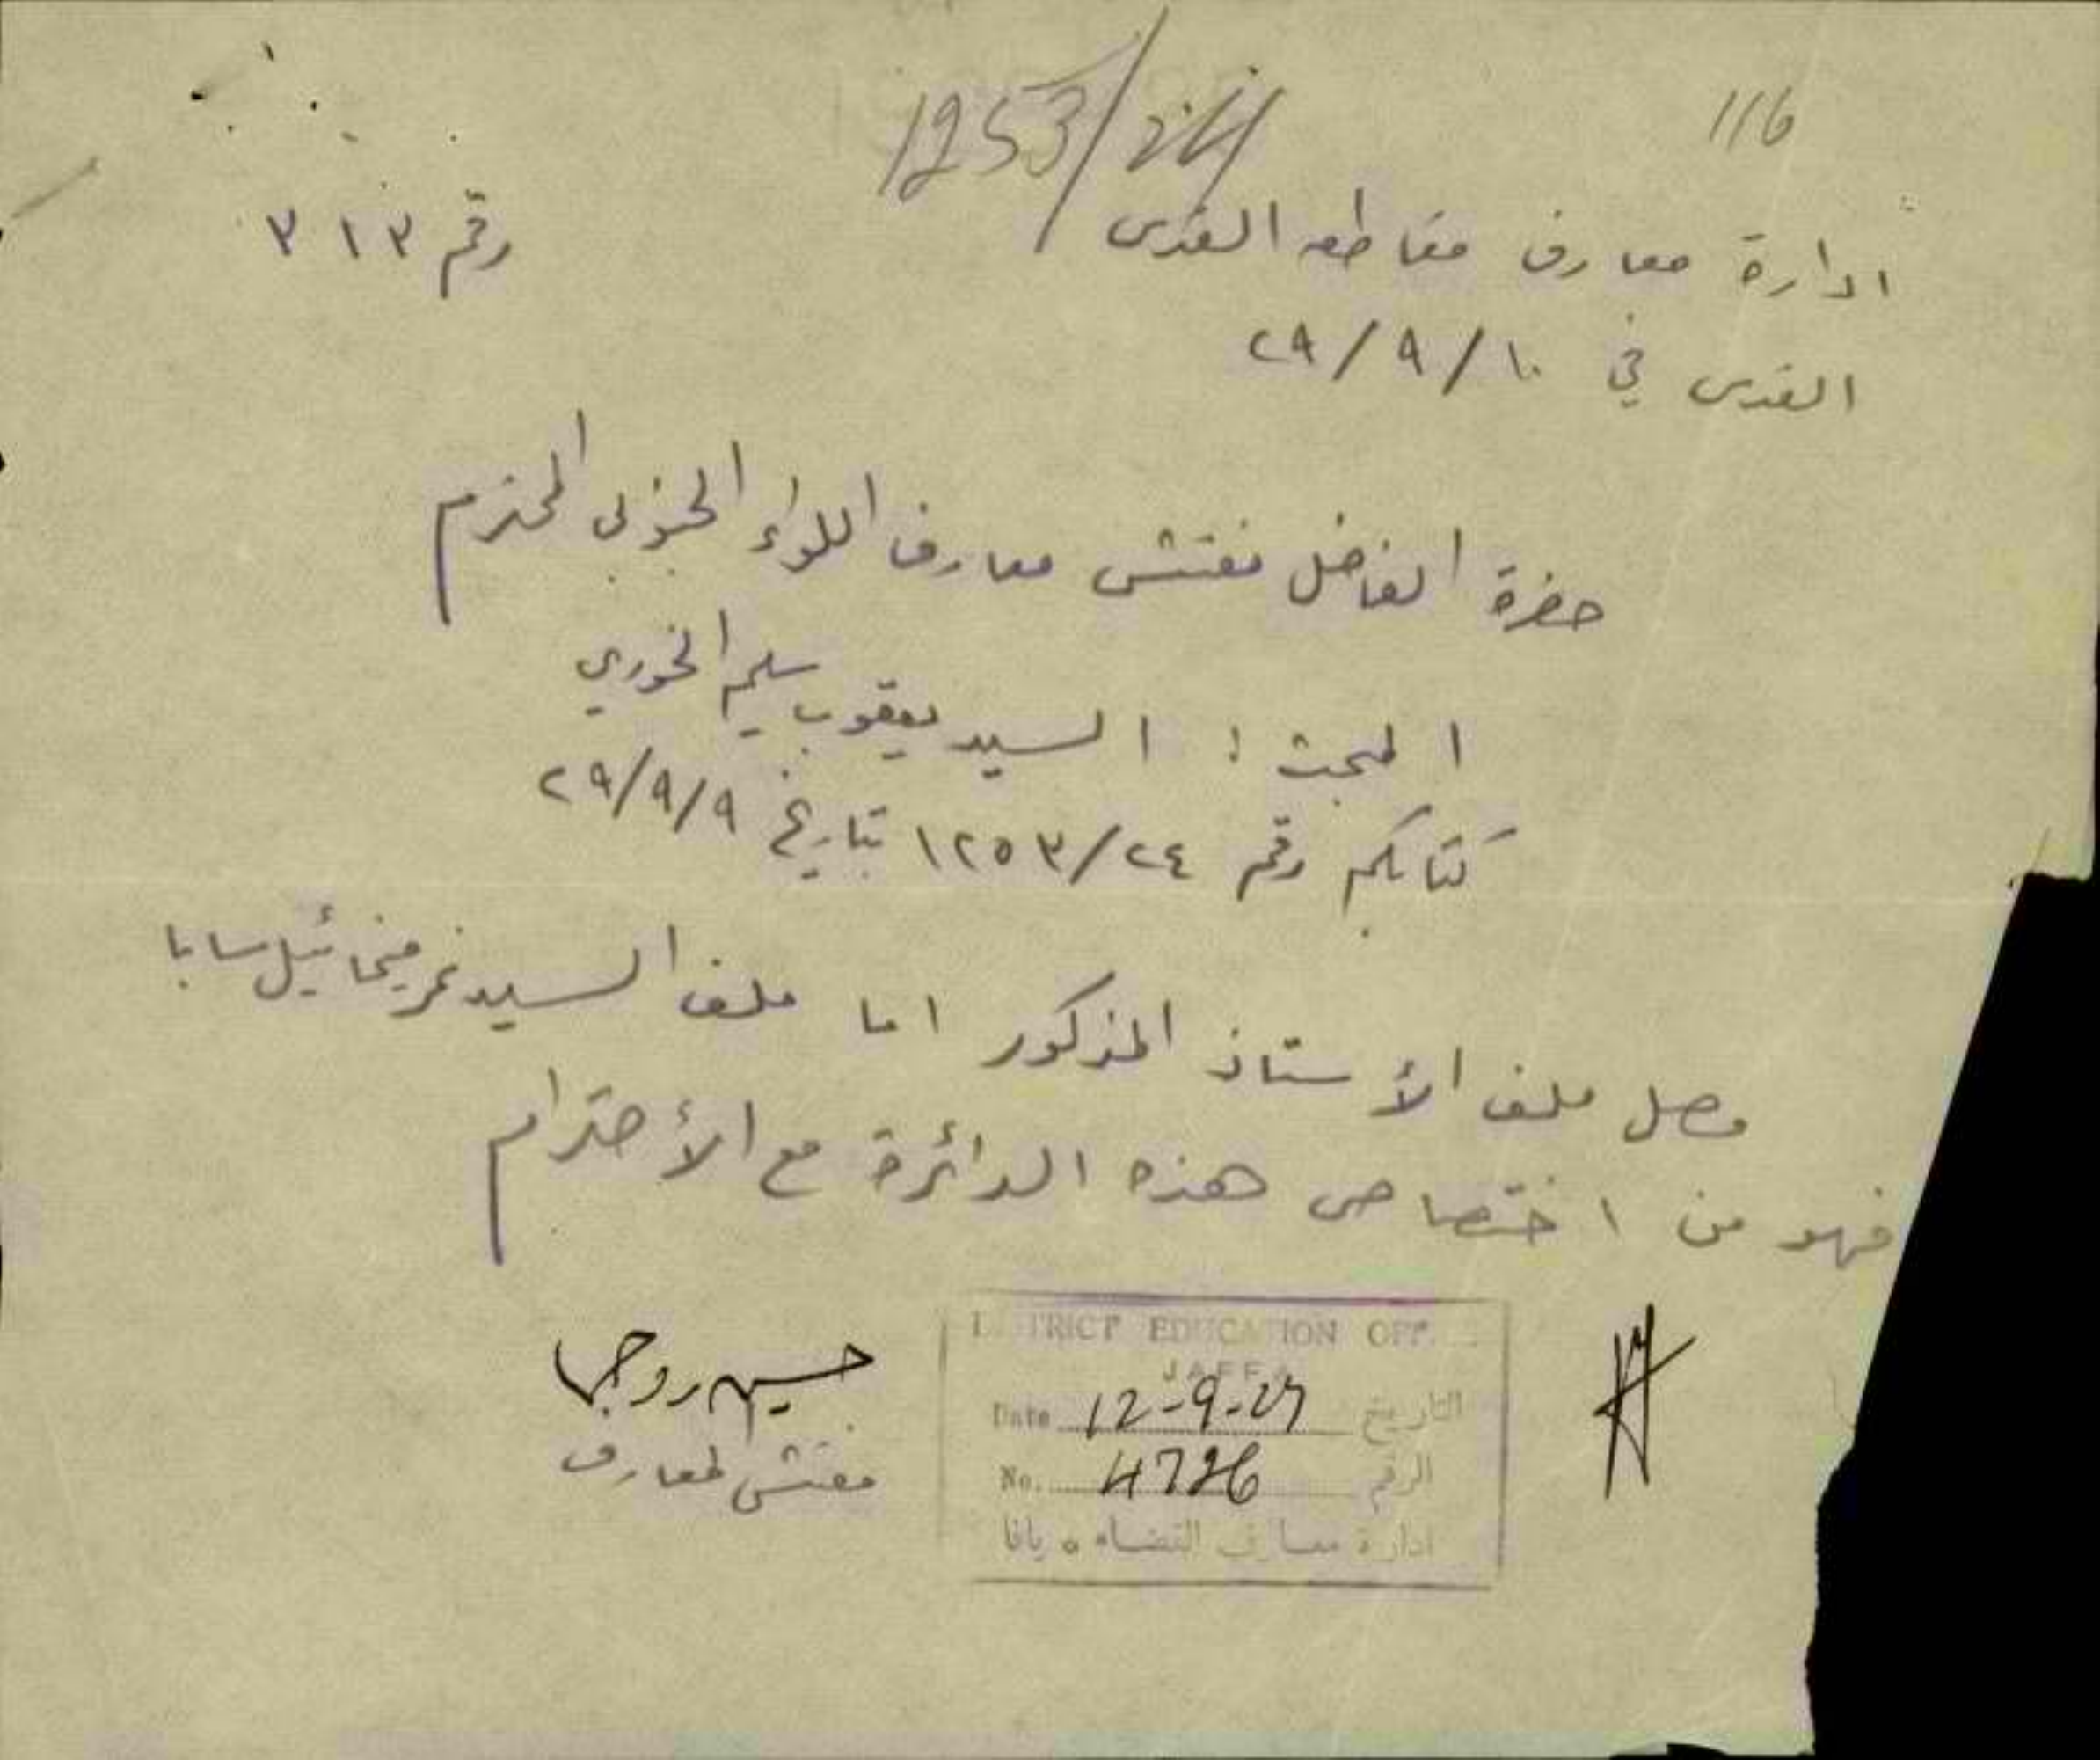 116
1253/24
ادارة معارف مقاطعة القدس
رقم ٣١٣
القدس في ١٠/٩/٢٩
حضرة الفاضل مفتش معارف اللواء الجنوبي المحترم
المبحث : السيد يعقوب سليم الخوري
كتابكم رقم ١٢٥٣/٢٤ بتاريخ ٢٩/٩/٩
وصل ملف الأستاذ المذكور اما ملف السيد نمر ميخائيل سابا
فهو من اختصاص هذه الدائرة مع الأحترام
حسين روحي
مفتش المعارف
DISTRICT EDUCATION OFFICE
JAFFA
Date 12-9-29 التاريخ
No. 4726 الرقم
ادارة معارف القضاء ٥ يافا